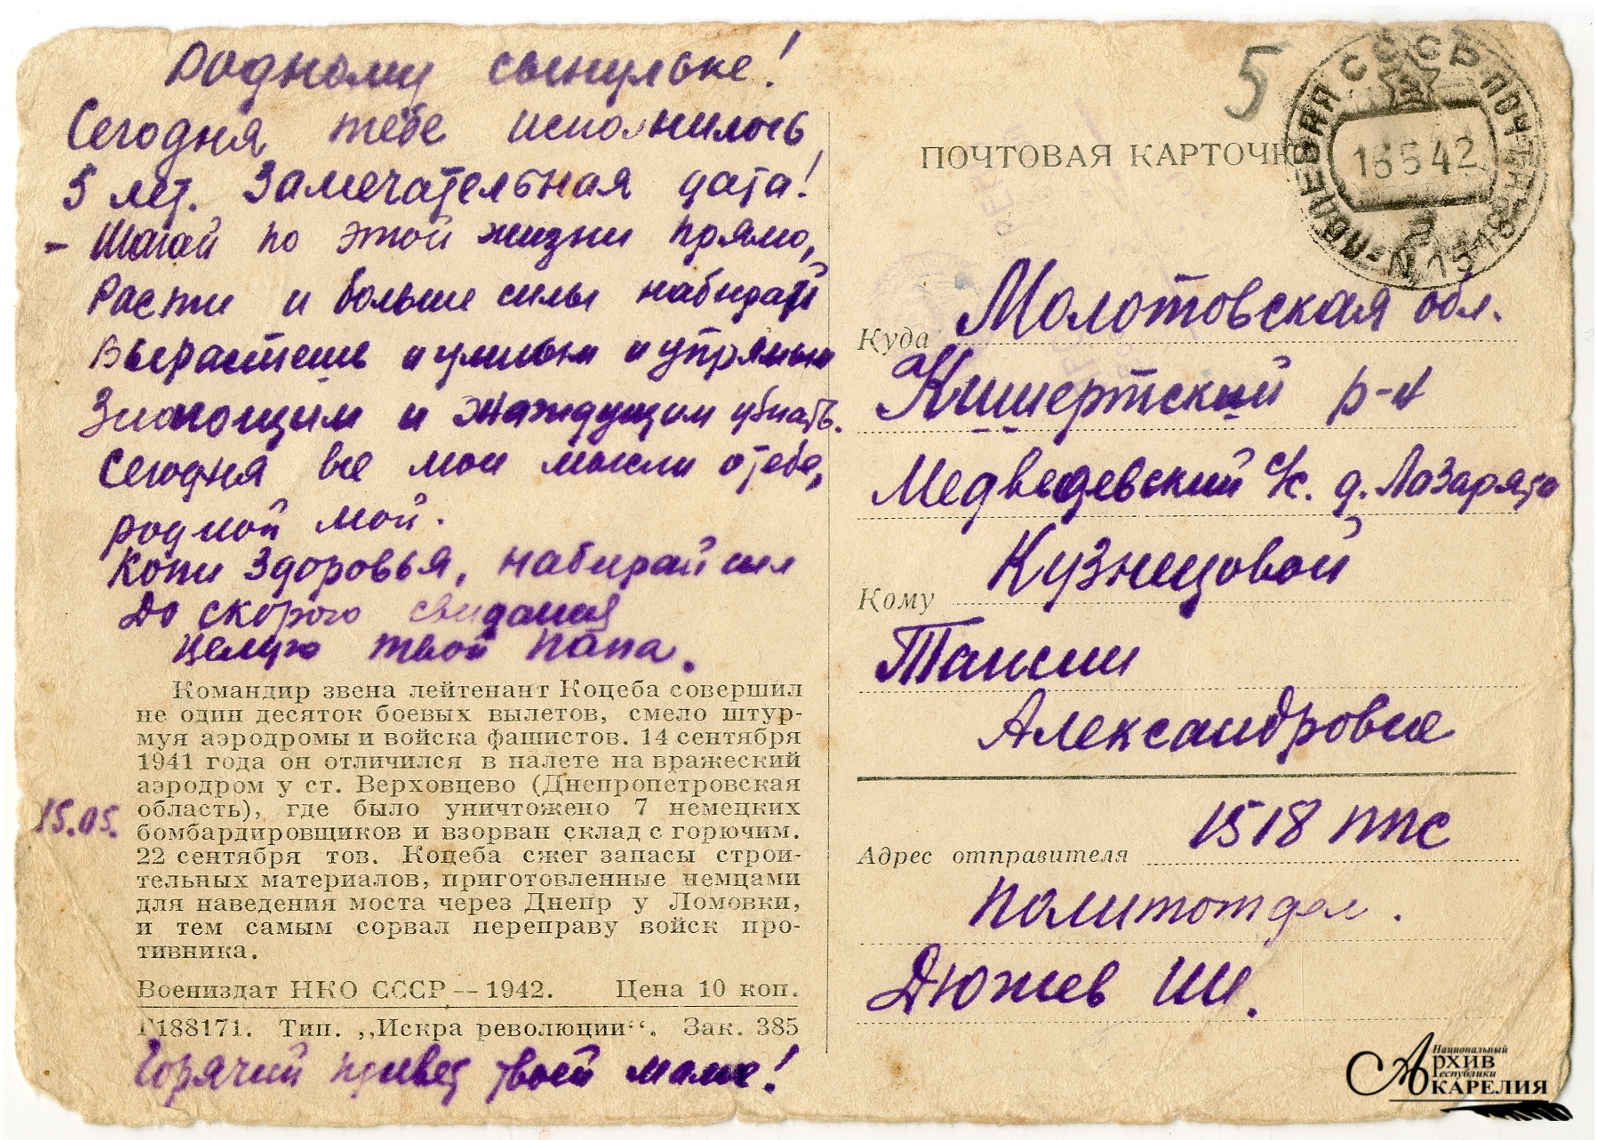 Родному сынульке!
Сегодня тебе исполнилось
5 лет. Замечательная дата!
- Шагай по этой жизни прямо,
Расти и больше силы набирай
Вырастешь и умным и упрямым
Знающим и жаждущим узнать.
Сегодня все мои мысли о тебе,
родной мой.
Копи здоровья, набирай сил
До скорого свидания
Целую твой папа.
15.05.
Командир звена лейтенант Коцеба совершил
не один десяток боевых вылетов, смело штур-
муя аэродромы и войска фашистов. 14 сентября
1941 года он отличился в налете на вражеский
аэродром у ст. Верховцево (Днепропетровская
область), где было уничтожено 7 немецких
бомбардировщиков и взорван склад с горючим.
22 сентября тов. Коцеба сжег запасы строи-
тельных материалов, приготовленные немцами
для наведения моста через Днепр у Ломовки,
и тем самым сорвал переправу войск про-
тивника.
Воениздат НКО СССР -- 1942. Цена 10 коп.
Г188171. Тип. ,,Искра революции“. Зак. 385
Горячий привет твоей маме!
5
ПОЧТОВАЯ КАРТОЧК
ПОЛЕВАЯ СССР ПОЧТ
16 5 42
N 1518
Куда Молотовская обл.
Кишертский р-н
Медведевский с/с. д. Лазарята
Кузнецовой
Кому
Таисии
Александровне
1518 ППС
Адрес отправителя
Политотдел.
Дюжев И.И.
Национальный
Архив
Республики
Карелия